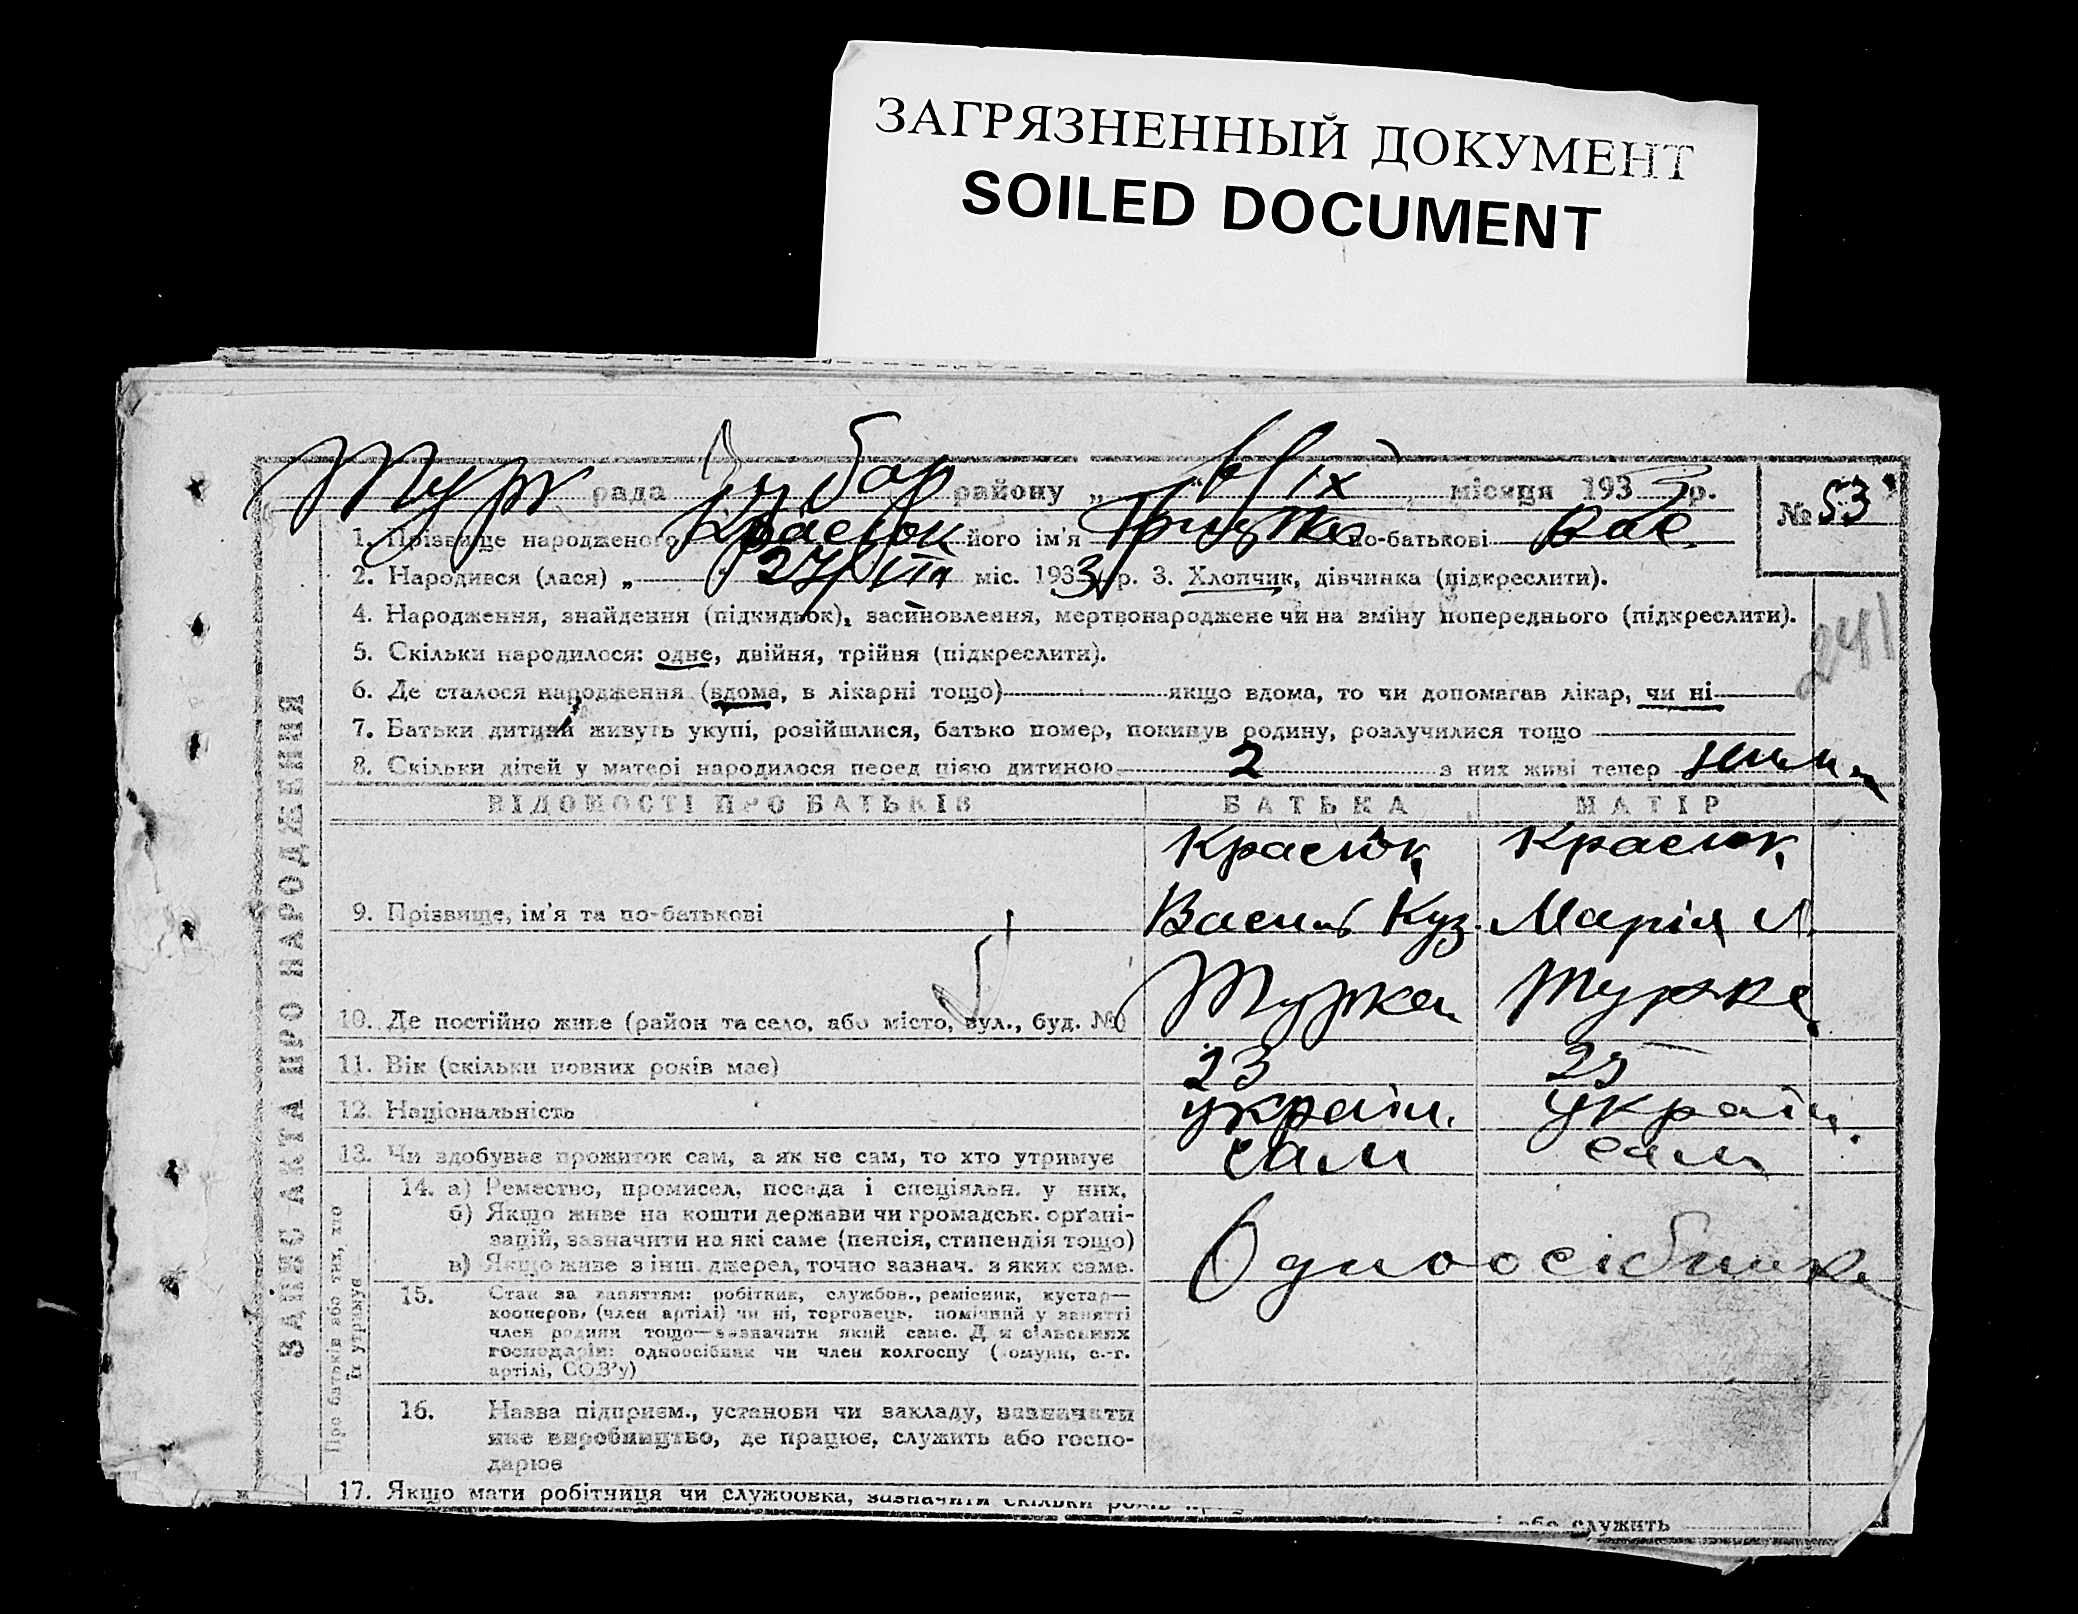 ЗАГРЯЗНЕННЫЙ ДОКУМЕНТ
SOILED DOCUMENT
рада району „ ІХ місяця 1933 р. № 53
1. Прізвище народженого Красюк його ім'я по-батькові Вас.
2. Народився (лася) „ 27/VIII міс. 1933 р. 3. Хлопчик, дівчинка (підкреслити).
4. Народження, знайдення (підкидьок), засиновлення, мертвонароджене чи на зміну попереднього (підкреслити).
241
5. Скільки народилося: одне, двійня, трійня (підкреслити).
6. Де сталося народження (вдома, в лікарні тощо) якщо вдома, то чи допомагав лікар, чи ні
7. Батьки дитини живуть укупі, розійшлися, батько помер, покинув родину, розлучилися тощо
8. Скільки дітей у матері народилося перед цією дитиною 2 з них живі тепер
ВІДОМОСТІ ПРО БАТЬКІВ БАТЬКА МАТІР
Красюк Красюк
9. Прізвище, ім'я та по-батькові Василь Куз. Марія Л.
10. Де постійно живе (район та село, або місто, вул., буд. №) Турка Турка
11. Вік (скільки повних років має) 23 25
12. Національність україн. україн.
13. Чи здобуває прожиток сам, а як не сам, то хто утримує сам сам
14. а) Ремество, промисел, посада і спеціяльн. у них,
б) Якщо живе на кошти держави чи громадськ. орґані-
зацій, зазначити на які саме (пенсія, стипендія тощо)
в) Якщо живе з інш. джерел, точно зазнач. з яких саме.
Одноосібники
15. Стан за заняттям: робітник, службов., ремісник, кустар—
кооперов. (член артілі) чи ні, торговець, помічний у занятті
член родини тощо—зазначити який саме. Для сільських
господарів: одноосібник чи член колгоспу (комуни, с.-г.
артілі, СОЗ'у)
16. Назва підприєм., установи чи закладу, зазначити
яке виробництво, де працює, служить або госпо-
дарює
17. Якщо мати робітниця чи службовка, зазначити скільки років
або служить
ЗАПИС АКТА ПРО НАРОДЖЕННЯ
Про батьків або тих, хто
їх утримує